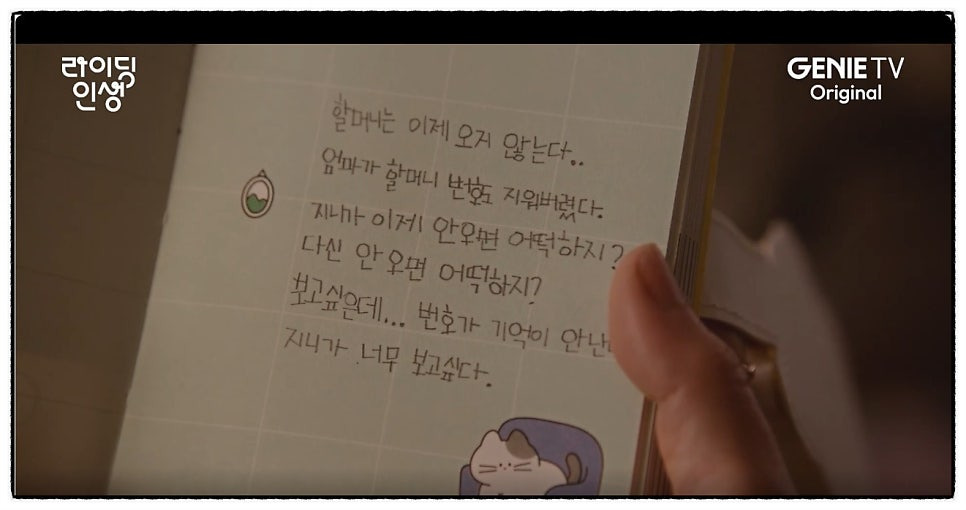 라이딩
인생
GENIE TV
Original
할머니는 이제 오지 않는다..
엄마가 할머니 번호도 지워버렸다.
지니가 이제 안오면 어떡하지?
다신 안 오면 어떡하지?
보고싶은데... 번호가 기억이 안난
지니가 너무 보고싶다.